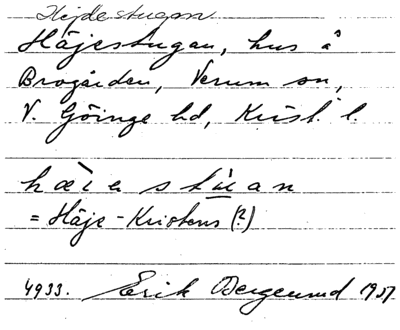 Hejdestugan
Häjestugan, hus å
Brogården, Verum sn,
V. Göinge hd, Krist. l.
hæ̀i e s tú̱ an
= Häje-Kristens (?)
4933. Erik Bergenud 1937